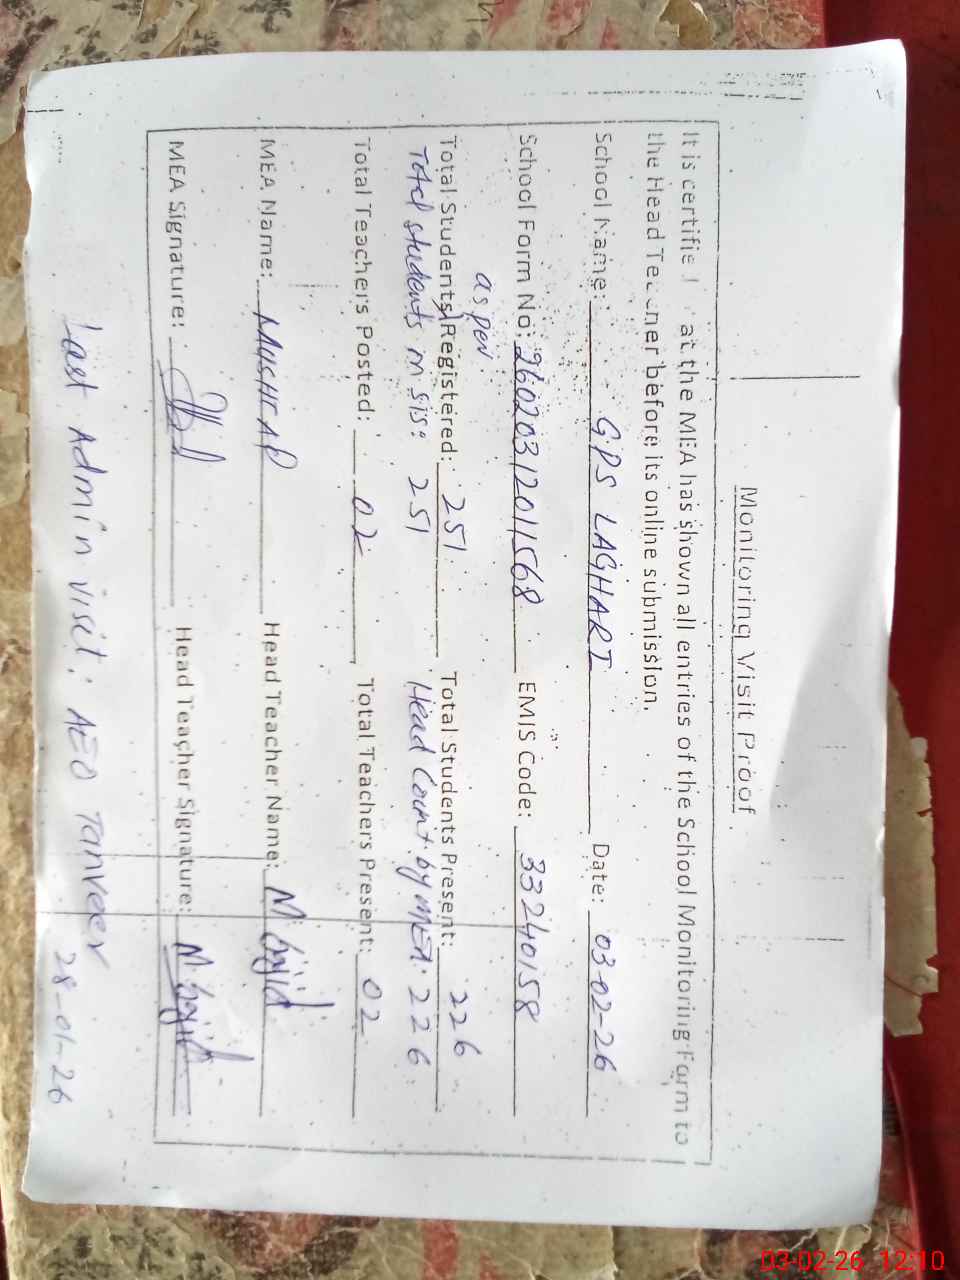 Monitoring Visit Proof
It is certified that the MEA has shown all entries of the School Monitoring Form to
the Head Teacher before its online submission.
School Name: GPS LAGHARI Date: 03-02-26
School Form No: 26020312011568 EMIS Code: 33240158
as per
Total Students Registered: 251 Total Students Present: 226
Total students in SIS: 251 Head Count by MEA: 226
Total Teachers Posted: 02 Total Teachers Present: 02
MEA Name: Head Teacher Name:
MEA Signature: Head Teacher Signature:
Last Admin visit: AEO Tanveer 28-01-26
03-02-26 12:10